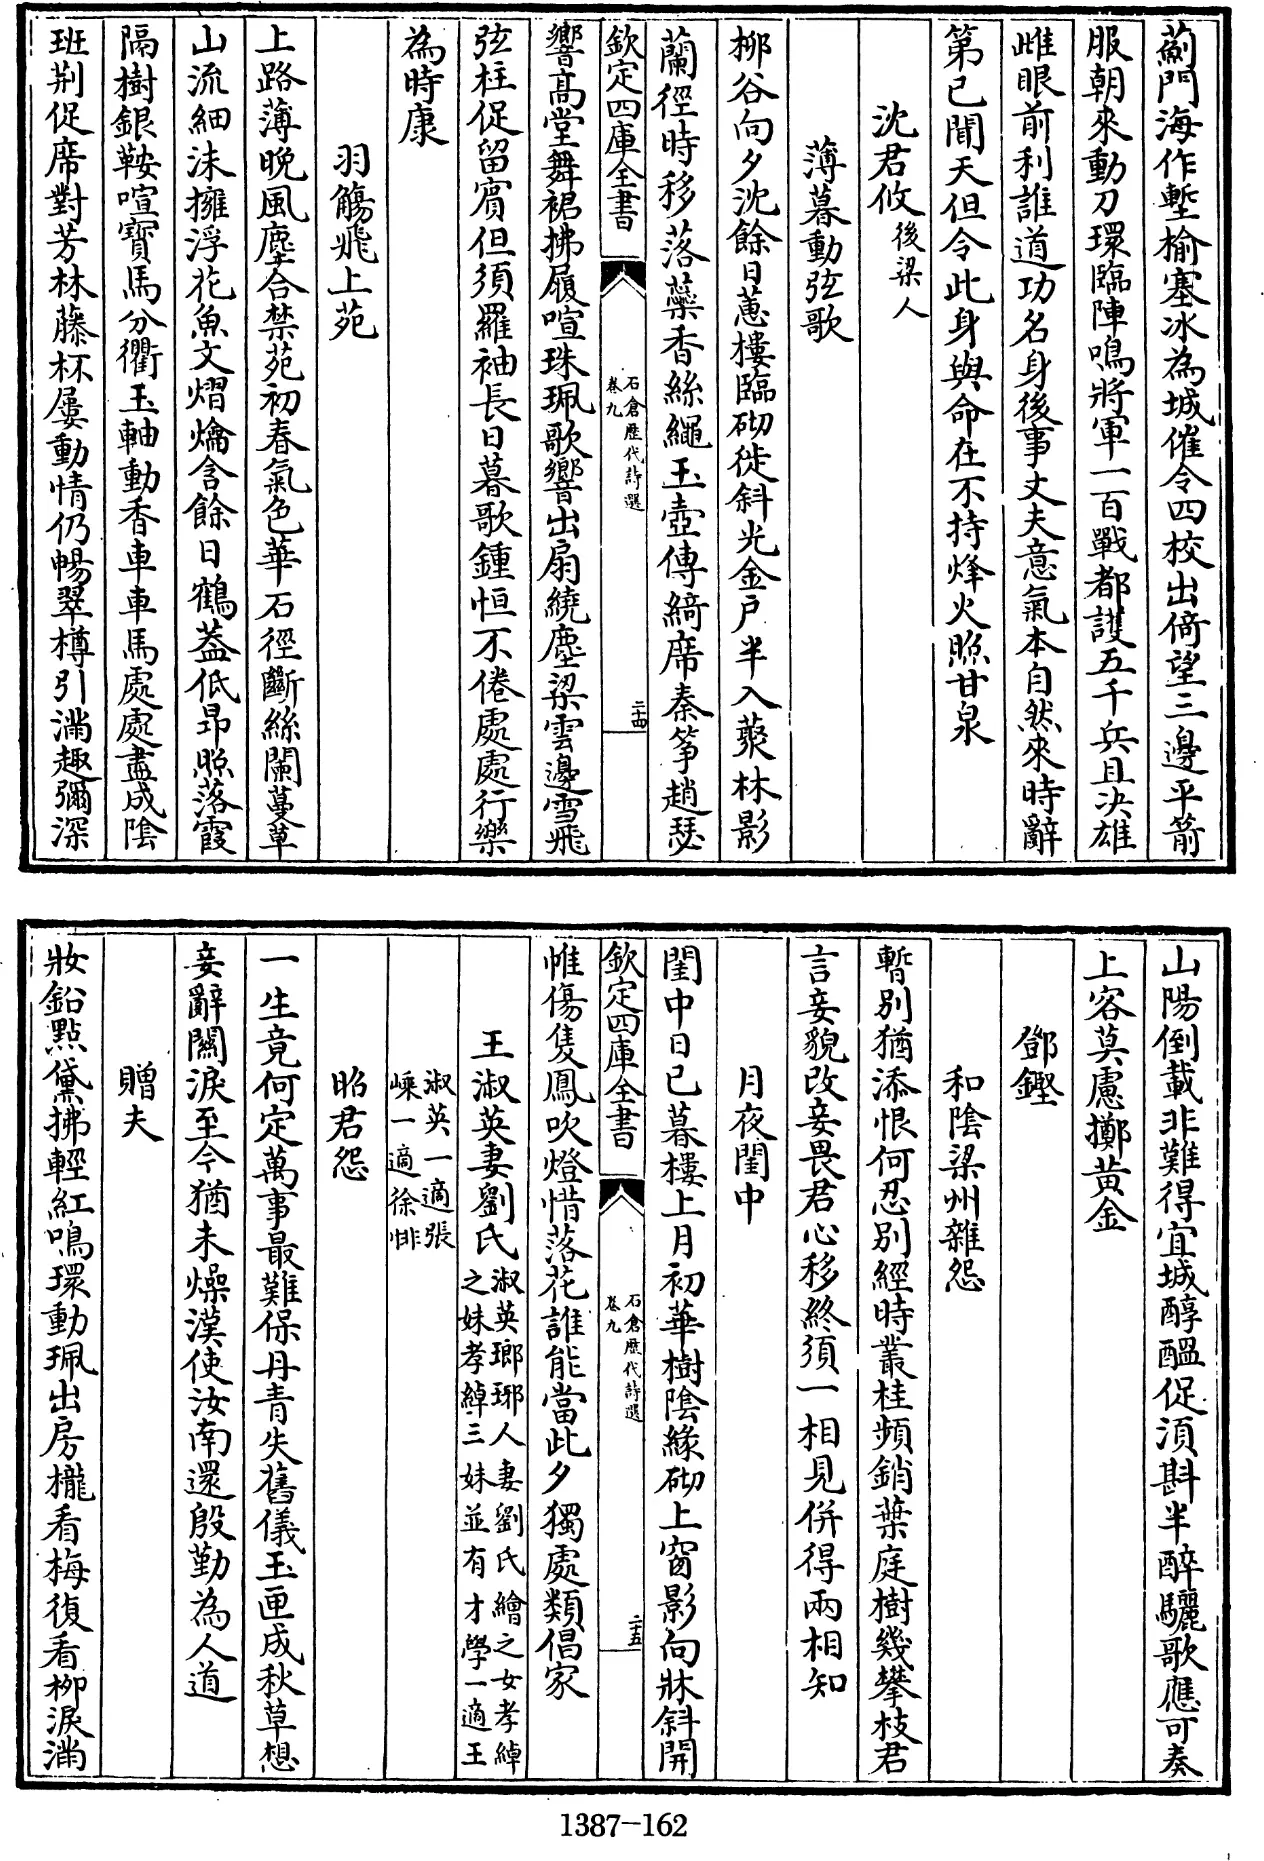 薊門海作塹榆塞冰為城催令四校出倚望三邊平箭
服朝來動刀環臨陣鳴將軍一百戰都護五千兵且決雄
雌眼前利誰道功名身後事丈夫意氣本自然來時辭
第已聞天但令此身與命在不持烽火照甘泉
沈君攸後梁人
薄暮動弦歌
柳谷向夕沈餘日蕙樓臨砌徙斜光金戶半入藂林影
蘭徑時移落蘂香絲繩玉壺傳綺席秦箏趙瑟
響高堂舞裙拂履喧珠珮歌響出扇繞塵梁雲邊雪飛
弦柱促留賓但須羅袖長日暮歌鍾恒不倦處處行樂
為時康
羽觴飛上苑
上路薄晚風塵合禁苑初春氣色華石徑斷絲闌蔓草
山流細沫擁浮花魚文熠爚含餘日鶴蓋低昂照落霞
隔樹銀鞍喧寶馬分衢玉軸動香車車馬處處盡成陰
班荆促席對芳林藤杯屢動情仍暢翠樽引滿趣彌深
欽定四庫全書
石倉歷代詩選
卷九
二十四
山陽倒載非難得宜城醇醖促須斟半醉驪歌應可奏
上客莫慮擲黃金
鄧鏗
和陰梁州雜怨
暫別猶添恨何忍別經時叢桂頻銷葉庭樹幾攀枝君
言妾貌改妾畏君心移終須一相見併得兩相知
月夜閨中
閨中日已暮樓上月初華樹陰緣砌上窗影向牀斜開
帷傷隻鳳吹燈惜落花誰能當此夕獨處類倡家
王淑英妻劉氏
淑英瑯琊人妻劉氏繪之女孝綽
之妹孝綽三妹並有才學一適王
淑英一適張
嵊一適徐悱
昭君怨
一生竟何定萬事最難保丹青失舊儀玉匣成秋草想
妾辭關淚至今猶未燥漢使汝南還殷勤為人道
贈夫
妝鉛點黛拂輕紅鳴環動珮出房櫳看梅復看柳淚滿
欽定四庫全書
石倉歷代詩選
卷九
二十五
1387-162